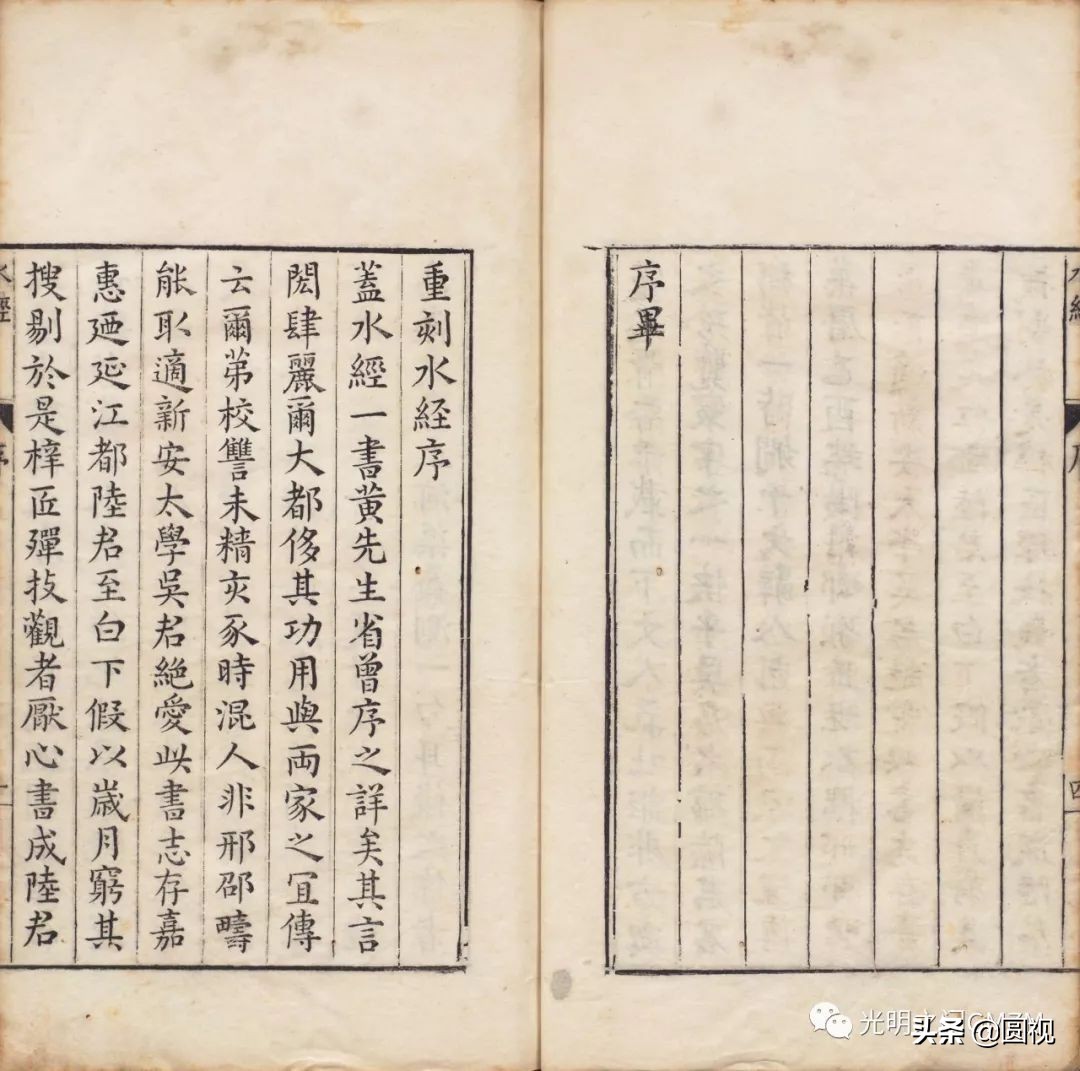 水經
序
四
序畢
重刻水経序
蓋水經一書黃先生省曾序之詳矣其言
閎肆麗爾大都侈其功用與兩家之宜傳
云爾苐校讐未精亥豕時混人非邢邵疇
能取適新安太學吳君絶愛此書志存嘉
惠廼延江都陸君至白下假以嵗月窮其
搜剔於是梓匠殫技觀者厭心書成陸君
水經
序
一
光明之门
头条 @圆视